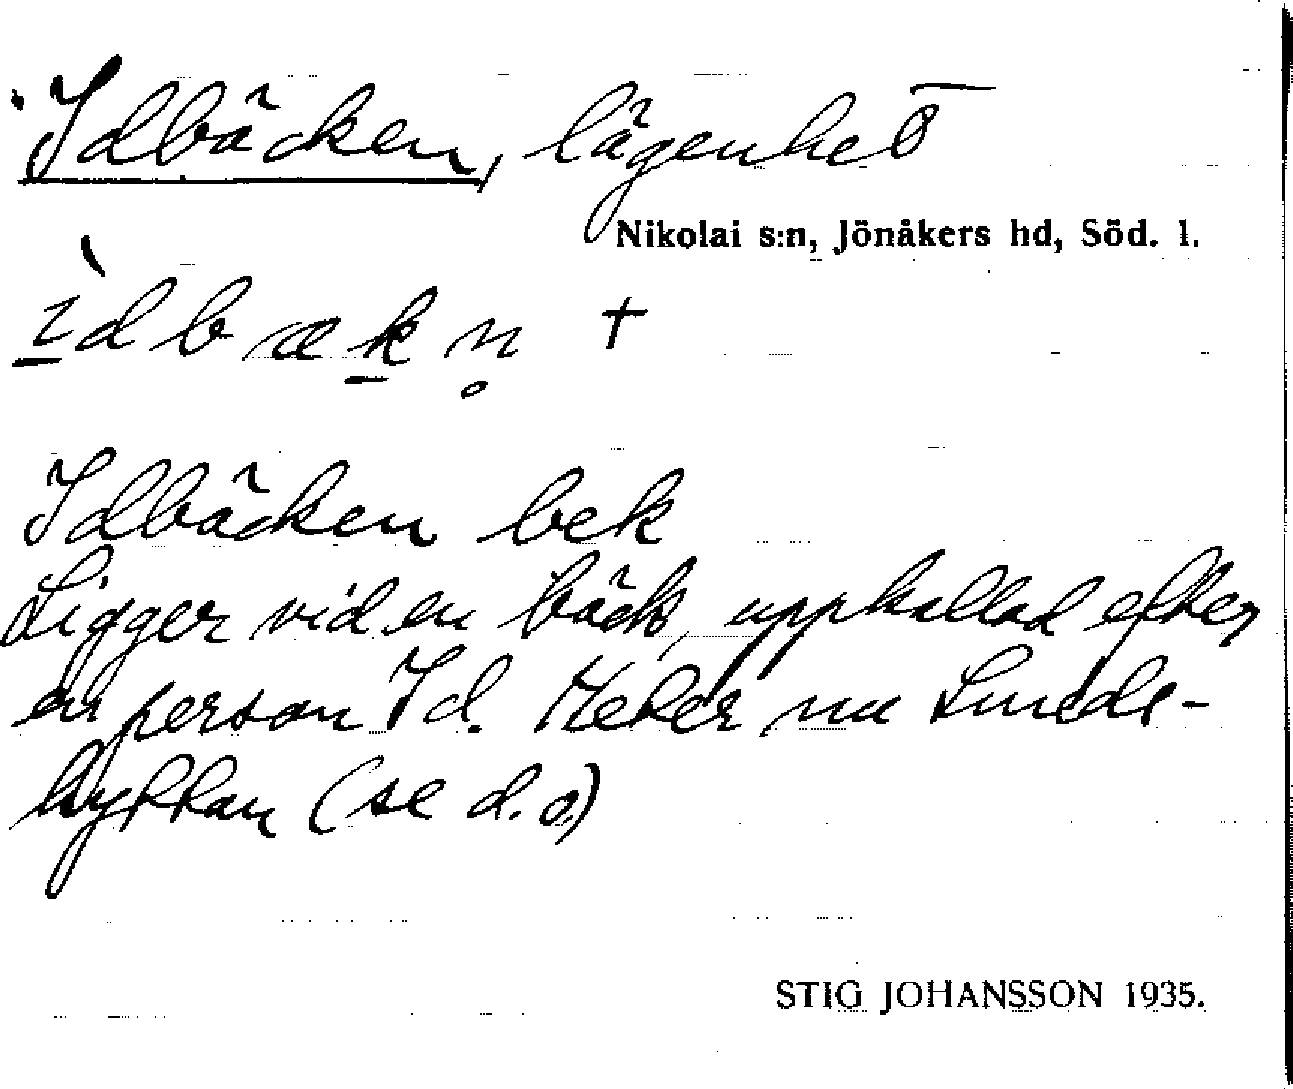 Idbäcken, lägenhet
Nikolai s:n, Jönåkers hd, Söd. l.
ìdbækn̥ +
Idbäcken bek
Ligger vid en bäck, uppkallad efter
en person Id. Heter nu Lunds-
hyttan (se d.o)
STIG JOHANSSON 1935.